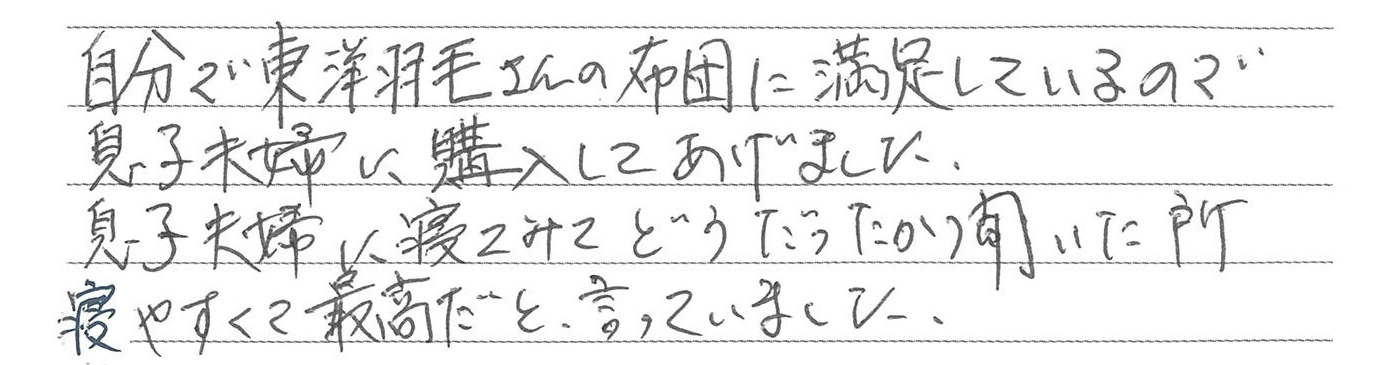 自分で東洋羽毛さんの布団に満足しているので
息子夫婦に購入してあげました.
息子夫婦に寝てみてどうだったかう聞いた所
寝やすくて最高だと、言っていました.